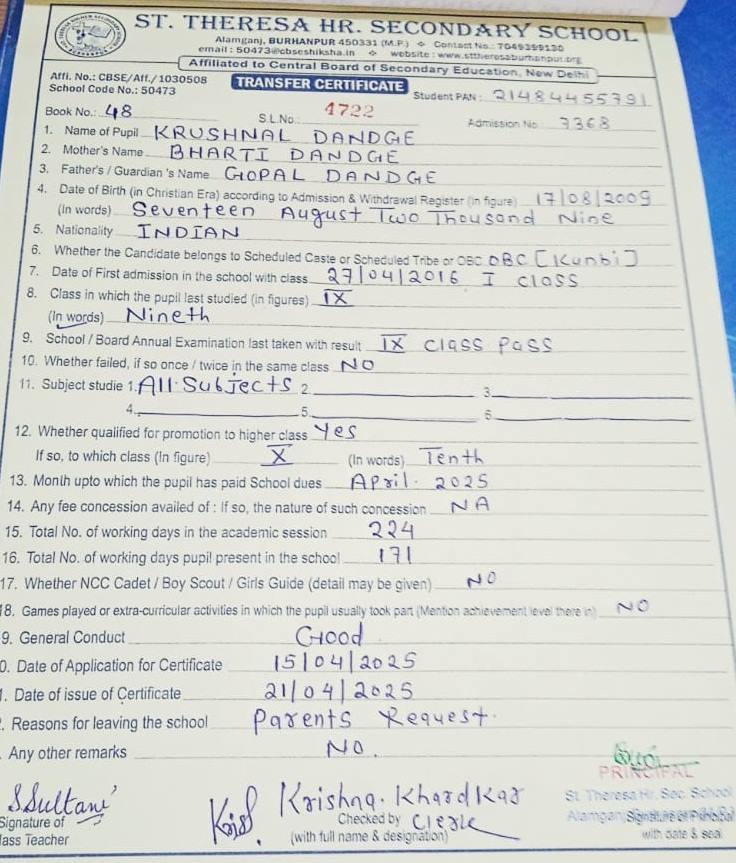 ST. THERESA HR. SECONDARY SCHOOL
Alamganj, BURHANPUR 450331 (M.P.) ❖ Contact No.: 7049399130
email : 50473@cbseshiksha.in ❖ website : www.sttheresaburhanpur.org
Affiliated to Central Board of Secondary Education, New Delhi
Affi. No.: CBSE/Aff./1030508
School Code No.: 50473
TRANSFER CERTIFICATE
Student PAN : 21484455791
Book No.: 48 S.L.No. 4722 Admission No 7368
1. Name of Pupil KRUSHNAL DANDGE
2. Mother's Name BHARTI DANDGE
3. Father's / Guardian 's Name GOPAL DANDGE
4. Date of Birth (in Christian Era) according to Admission & Withdrawal Register (in figure) 17/08/2009
(In words) Seventeen August Two Thousand Nine
5. Nationality INDIAN
6. Whether the Candidate belongs to Scheduled Caste or Scheduled Tribe or OBC OBC [Kunbi]
7. Date of First admission in the school with class 27/04/2016 I class
8. Class in which the pupil last studied (in figures) IX
(In words) Nineth
9. School / Board Annual Examination last taken with result IX class Pass
10. Whether failed, if so once / twice in the same class NO
11. Subject studie 1. All Subjects 2. 3.
4. 5. 6.
12. Whether qualified for promotion to higher class Yes
If so, to which class (In figure) X (In words) Tenth
13. Month upto which the pupil has paid School dues April. 2025
14. Any fee concession availed of : If so, the nature of such concession NA
15. Total No. of working days in the academic session 224
16. Total No. of working days pupil present in the school 171
17. Whether NCC Cadet / Boy Scout / Girls Guide (detail may be given) NO
18. Games played or extra-curricular activities in which the pupil usually took part (Mention achievement level there in) NO
9. General Conduct Good
0. Date of Application for Certificate 15/04/2025
. Date of issue of Certificate 21/04/2025
. Reasons for leaving the school Parents Request.
Any other remarks NO.
PRINCIPAL
St. Theresa Hr. Sec. School
SSultani Krishna. Khardkar
Signature of Checked by Clerk Alamganj Signature of Principal
lass Teacher (with full name & designation) with date & seal